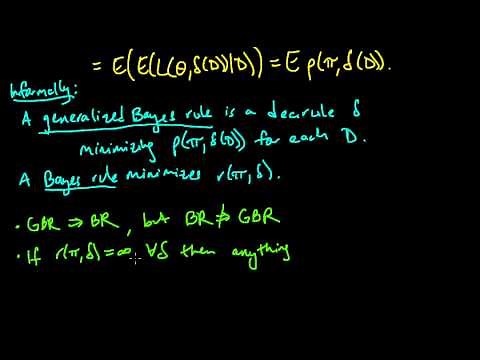 = E(E(L(θ,δ(D))|D)) = E ρ(π,δ(D)).
Informally:
A generalized Bayes rule is a dec. rule δ
minimizing ρ(π,δ(D)) for each D.
A Bayes rule minimizes r(π,δ).
• GBR ⇒ BR, but BR ⇏ GBR
• If r(π,δ)=∞ ∀δ then anything